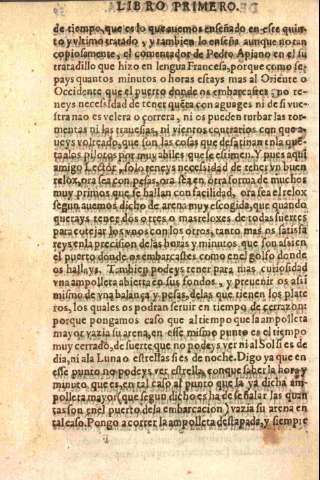 LIBRO PRIMERO.
de tiempo, que es lo que auemos enseñado en este quin-
to y vltimo tratado, y tambien lo enseña aunque no tan
copiosamente, el comentador de Pedro Apiano en el su
tratadillo que hizo en lengua Francesa, porque como se-
pays quantos minutos o horas estays mas al Oriente o
Occidente que el puerto donde os embarcastes no te-
neys necessidad de tener quẽta con aguages ni de si vue-
stra nao es velera o correra, ni os pueden turbar las tor-
mentas ni las trauesias, ni vientos contrarios con que a-
ueys volteado, que son las cosas que desatinan tãla que
taalos pilotos por muy abiles que se estimen. Y pues aqui
amigo Lector, solo teneys necessidad de tener vn buen
relox, ora sea con pesas, ora sea en otra forma de muchos
muy primos que se hallan con facilidad, ora sea el relox
segun auemos dicho de arena muy escogida, que quando
querays tener dos o tres o mas reloxes de todas suertes
para cotejar los vnos con los otros, tanto mas os satisfa
reys en la precision de las horas y minutos que son assi en
el puerto donde os embarcastes como en el golfo donde
os hallays. Tambien podeys tener para mas curiosidad
vna ampolleta abierta en sus fondos, y preuenir os assi
mismo de vna balança y pesas, de las que tienen los plate
ros, los quales os podran seruir en tiempo de cerrazon:
porque pongamos caso que al tiempo que la ampolleta
mayor vazia su arena, en esse mismo punto es el tiempo
muy cerrado, de suerte que no podeys ver ni al Sol si es de
dia, ni a la Luna o estrellas si es de noche. Digo ya que en
esse punto no podeys ver estrella, con que saber la hora y
minuto que es, en tal caso al punto que la ya dicha am-
polleta mayor (que segun dicho es ha de señalar las quan
tas son en el puerto de la embarcacion) vazia su arena en
tal caso. Pongo a correr la ampolleta destapada, y siempre